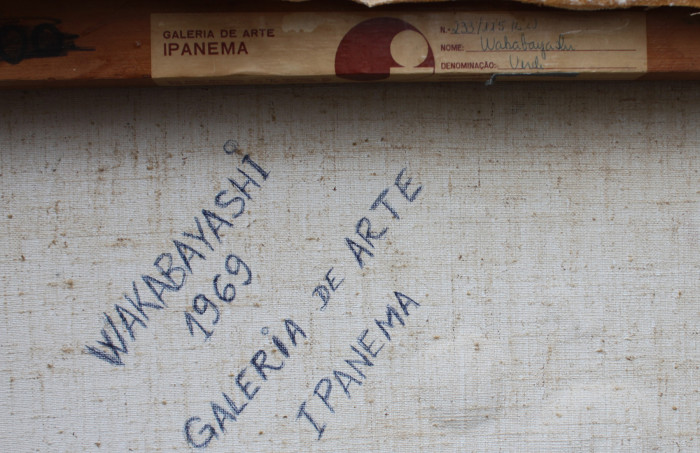 GALERIA DE ARTE
IPANEMA
N.
NOME: Wakabayashi
DENOMINAÇÃO: Verde
WAKABAYASHI
1969
GALERIA DE ARTE
IPANEMA